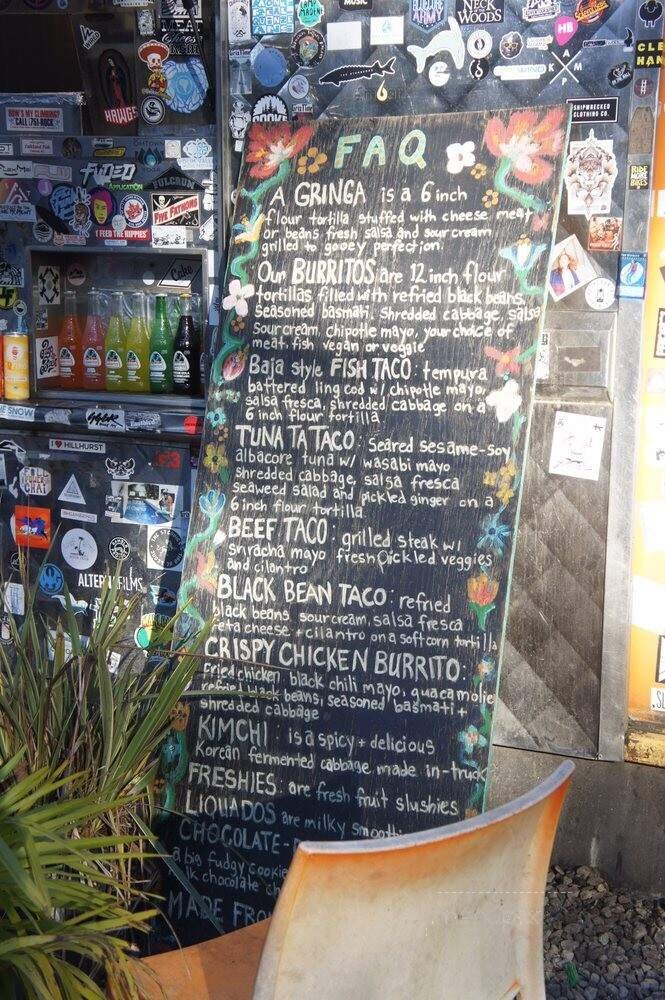 FAQ
A GRINGA is a 6 inch
flour tortilla stuffed with cheese meat
or beans fresh salsa and sour cream
grilled to gooey perfection.
Our BURRITOS are 12 inch flour
tortillas filled with refried black beans,
seasoned basmati, shredded cabbage, salsa
sour cream, chipotle mayo, your choice of
meat, fish vegan or veggie
Baja style FISH TACO: tempura
battered ling cod w/ chipotle mayo,
salsa fresca, shredded cabbage on a
6 inch flour tortilla
TUNA TATACO: Seared sesame-soy
albacore tuna w/ wasabi mayo
shredded cabbage, salsa fresca
seaweed salad and pickled ginger on a
6 inch flour tortilla
BEEF TACO: grilled steak w/
sriracha mayo fresh pickled veggies
and cilantro
BLACK BEAN TACO: refried
black beans sour cream, salsa fresca
feta cheese + cilantro on a soft corn tortilla
CRISPY CHICKEN BURRITO:
Fried chicken, black chili mayo, guacamole
refried black beans, seasoned basmati +
shredded cabbage
KIMCHI: is a spicy + delicious
Korean fermented cabbage made in-truck
FRESHIES: are fresh fruit slushies
LIQUADOS are milky smoothi
CHOCOLATE-
a big fudgy cookie
lk chocolate ch
MADE FRO
HOW'S MY CLIMBING?
CALL 751-ROCK
HAWGS
FIVE FATHOMS
FEED THE HIPPIES
FULCRUM
APPLICATION
I ♥ HILLHURST
ALTER FILMS
NECK
WOODS
ARMY
MUSIC
HB
K M
A
SHIPWRECKED
CLOTHING CO.
RIDE
MORE
BIKES
CLE
HAN
CHAI
Coke